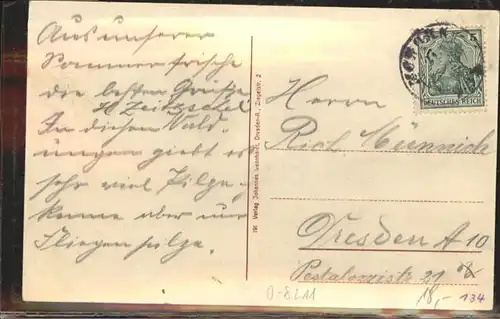 Aus unserer
Sommerfrische
die besten Grüße
H Zeitzschel
In diesen Wald-
ungen giebt es
sehr viel Pilze
kenne aber nur
Fliegenpilze.
Verlag Johannes Dresden-A., Ziegelstr. 2
5
DEUTSCHES REICH
Herrn
Rich. Münnich
Dresden A 10
Pestalozzistr 21
0-8211
18,-
134